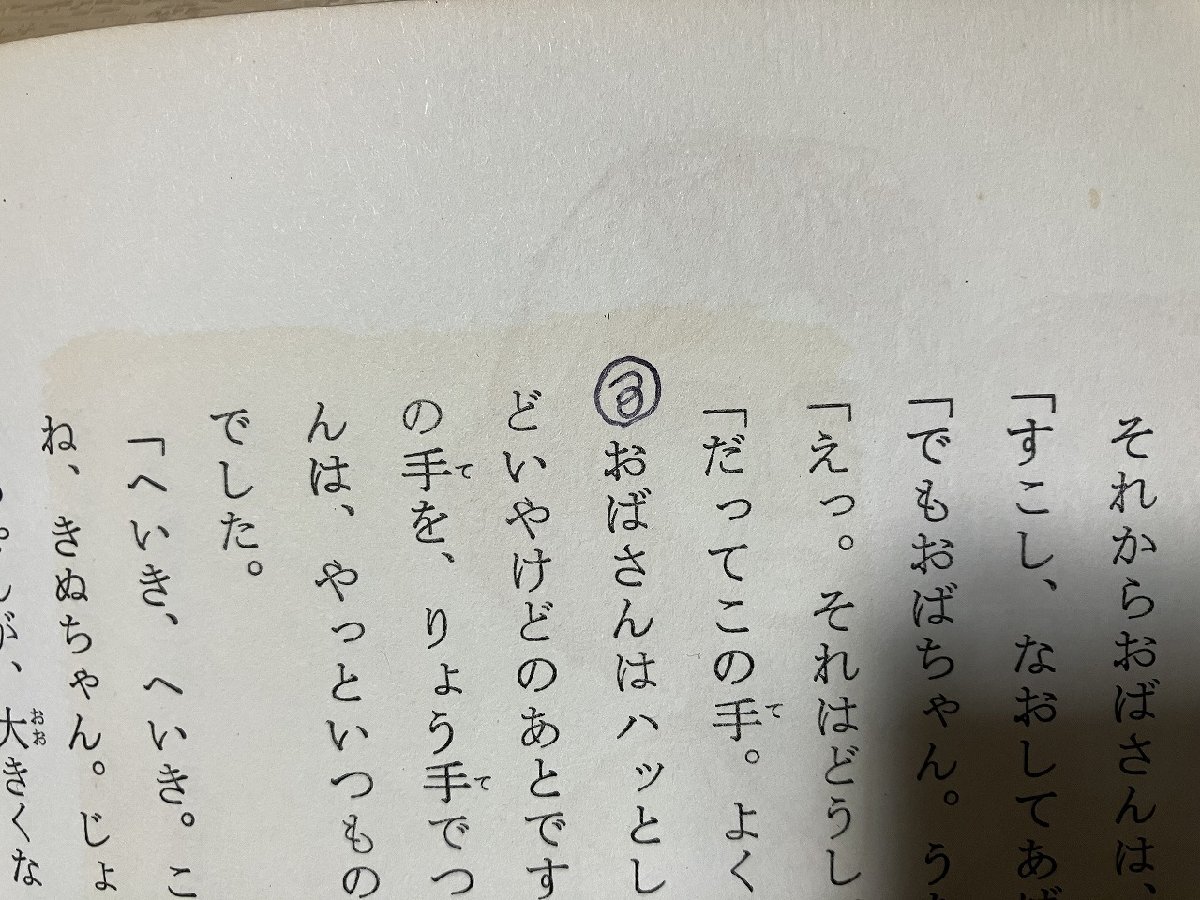 それからおばさんは、
「すこし、なおしてあげ
「でもおばちゃん。う
「えっ。それはどうし
「だってこの手。よく
て
③おばさんはハッとし
どいやけどのあとです
の手を、りょう手でつ
て
て
んは、やっといつもの
でした。
「へいき、へいき。こ
ね、きぬちゃん。じょ
が、大きくな
おお